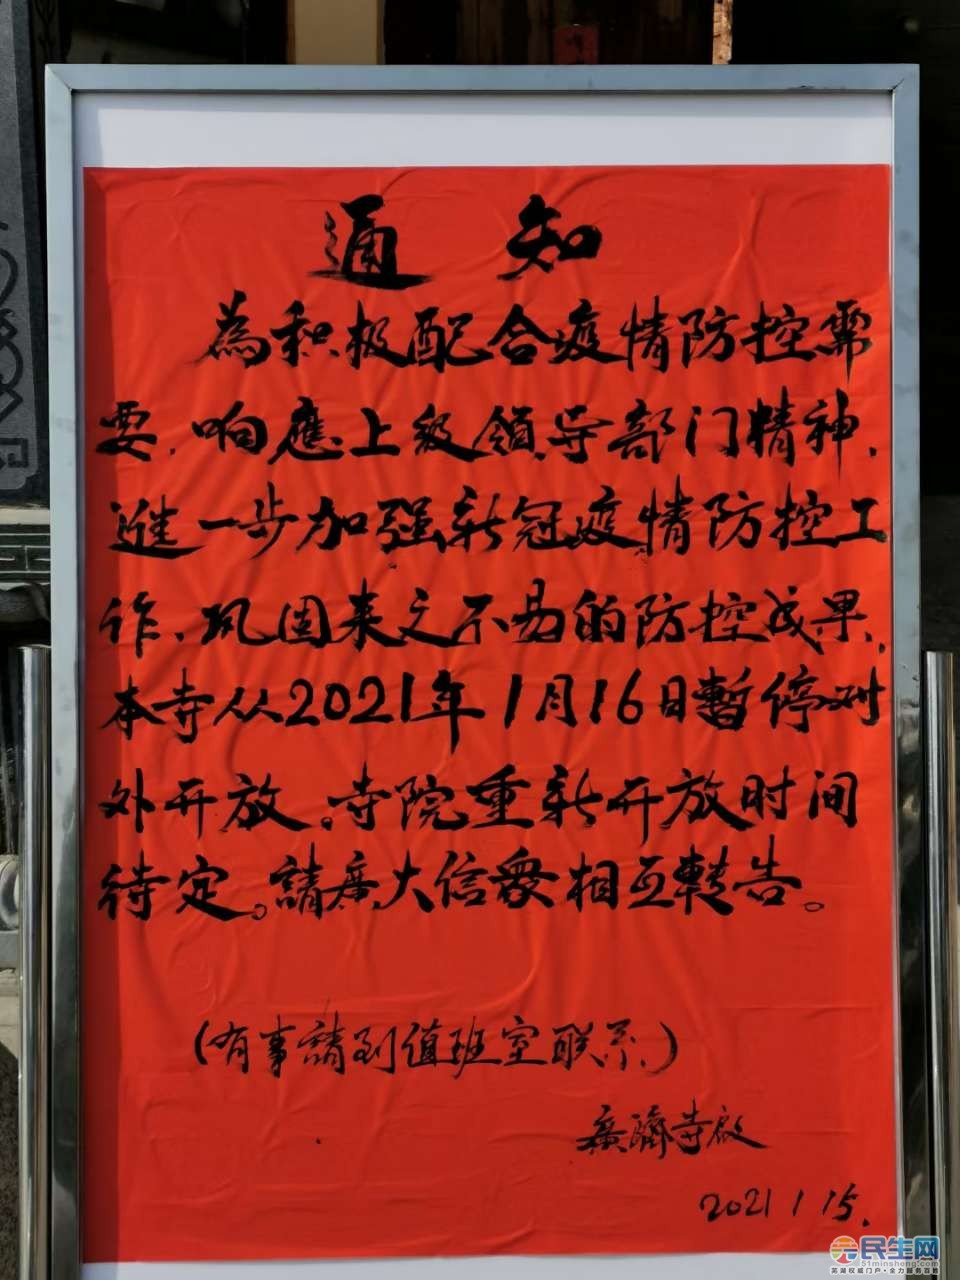 通知
為积极配合疫情防控需
要，响應上级领导部门精神，
進一步加强新冠疫情防控工
作、巩固来之不易的防控成果，
本寺从2021年1月16日暫停对
外开放。寺院重新开放时间
待定。請廣大信衆相互轉告。
（有事請到值班室联系）
廣濟寺啟
2021 1 15.
民生网
51minsheng.com
芜湖权威门户·全力服务百姓